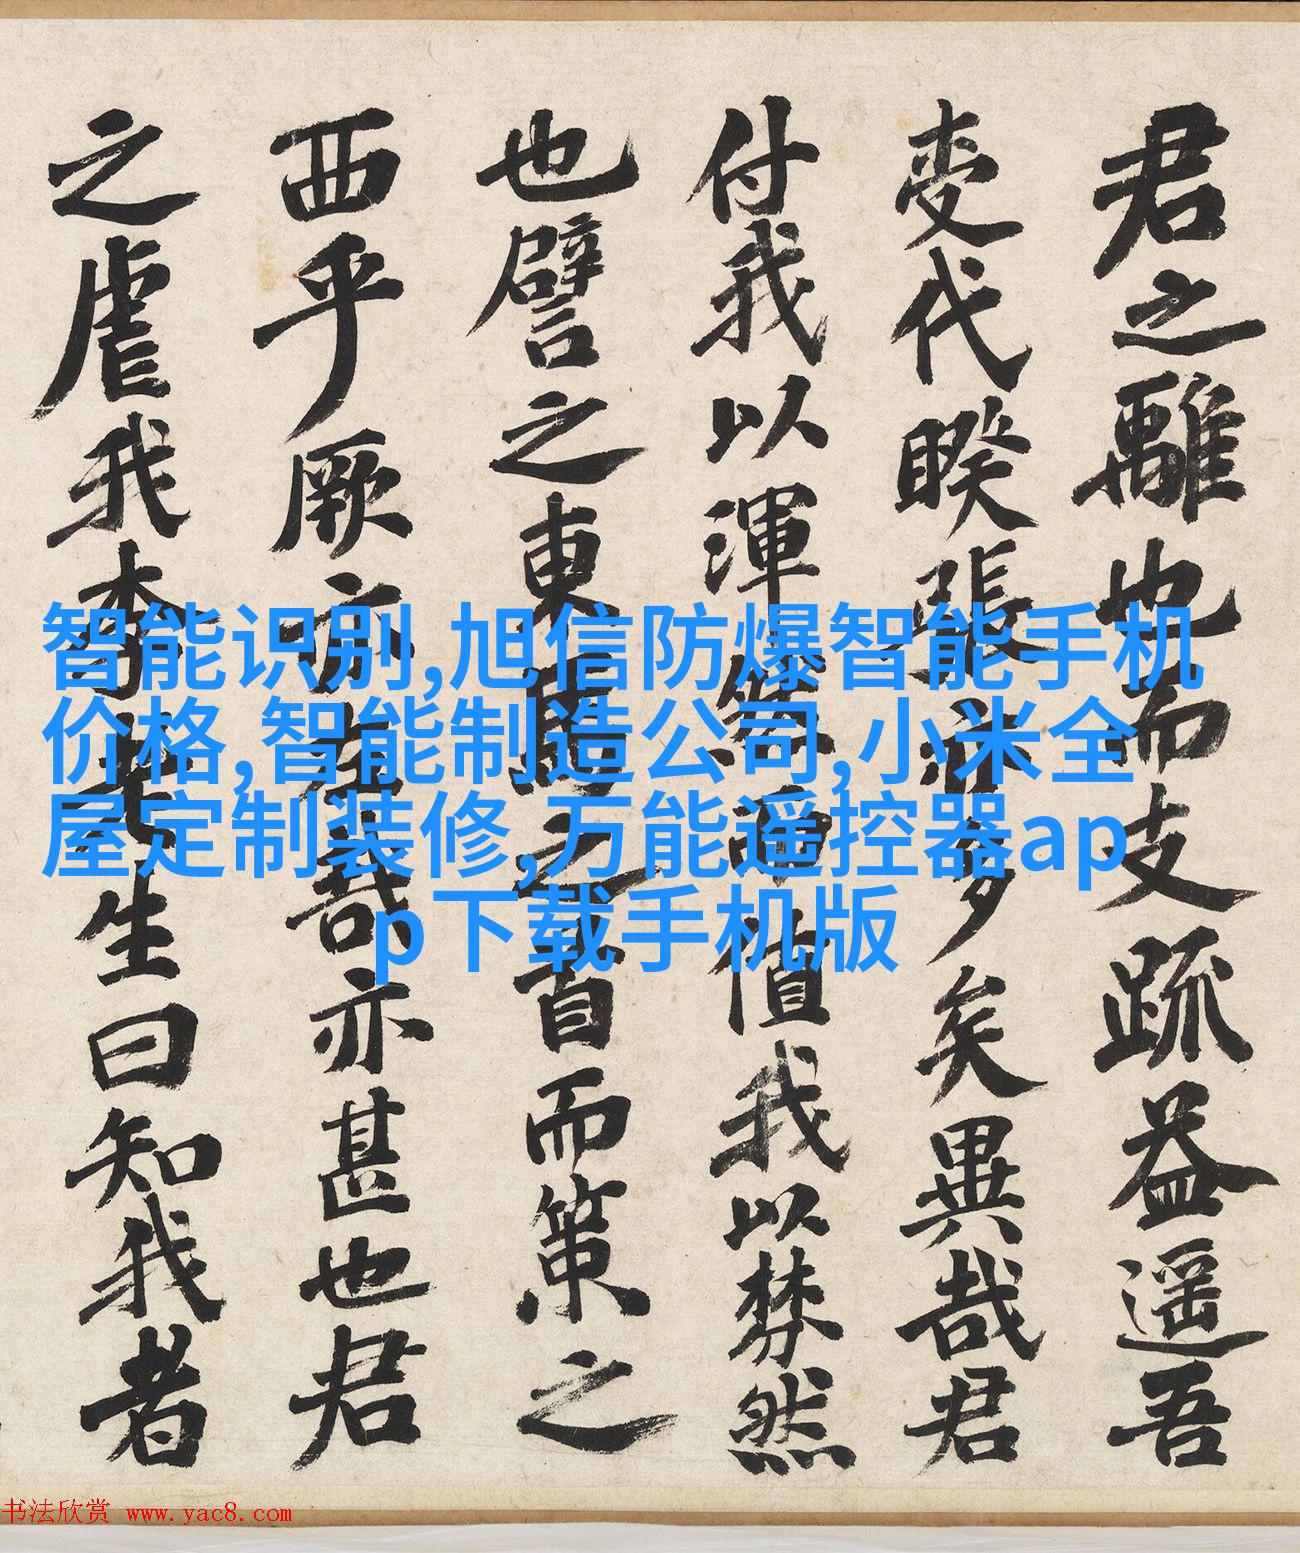 君之離也而支疏益遥吾
代睽張多矣異哉君
付我以渾而值我以棼然
也譬之東之首而策之
西乎厥亦哉亦甚也君
之虐我李生曰知我者
智能识别,旭信防爆智能手机
价格,智能制造公司,小米全
屋定制装修,万能遥控器ap
p下载手机版
书法欣赏 www.yac8.com